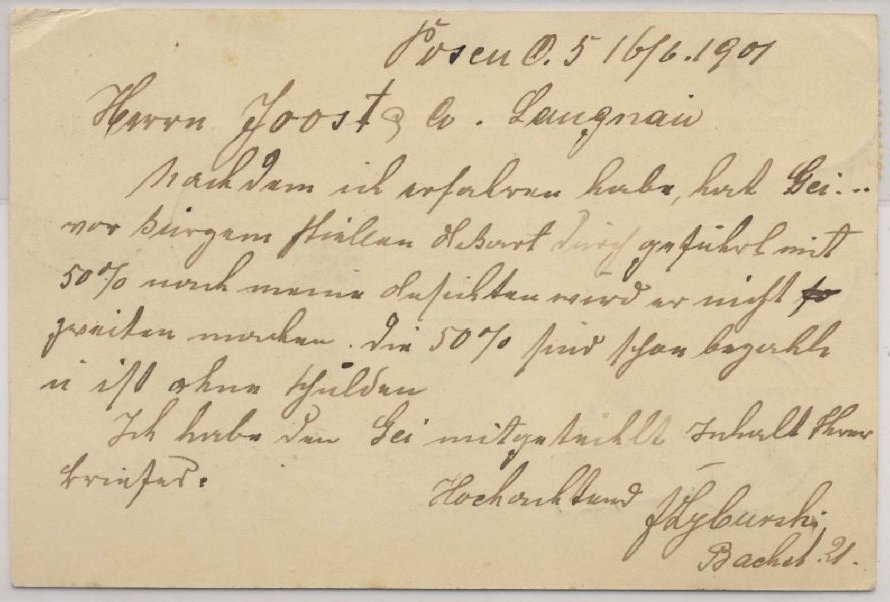 Posen O. 5 16/6. 1901
Herrn Joost & Co. Langnau
Nachdem ich erfahren habe, hat Gei...
vor kurzem durch geführt mit
50% nach meine wird er nicht
zweiten machen. Die 50% sind schon bezahlt
u ist ohne Schulden
Ich habe den Gei mitgeteihlt Inhalt Ihrer
briefes.
Hochachtend
Bachst. 21.